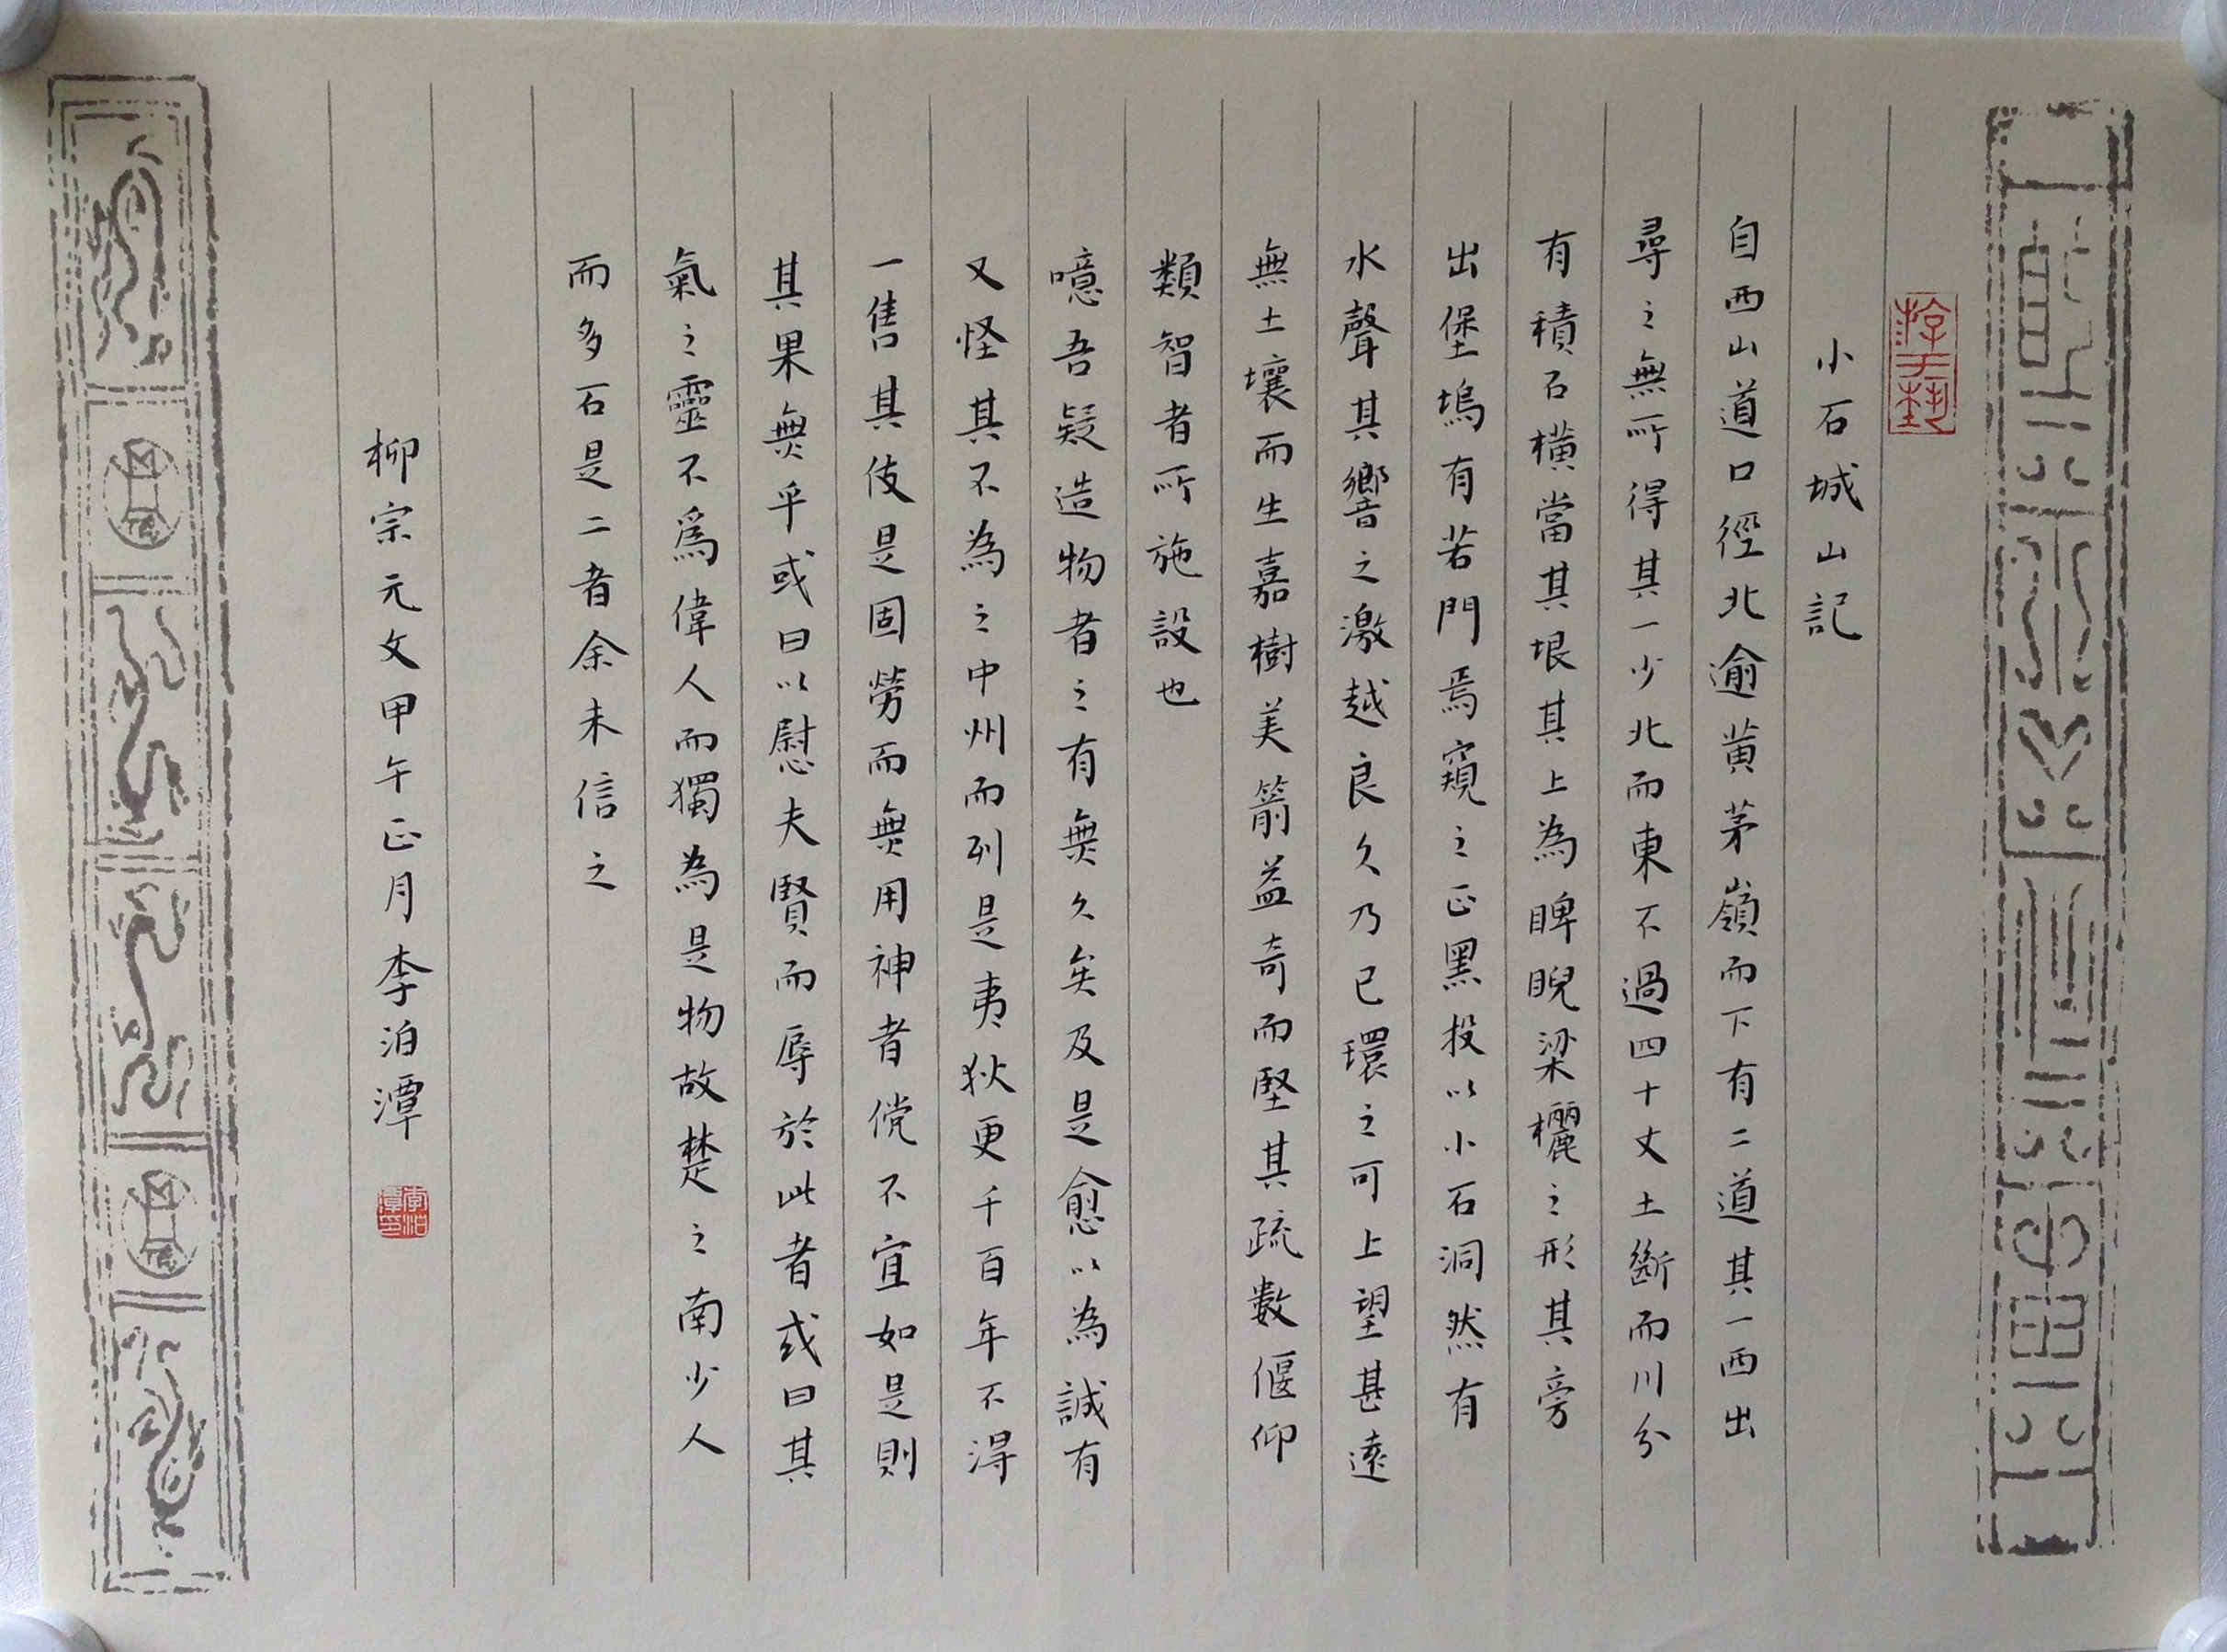 小石城山記
自西山道口徑北逾黃茅嶺而下有二道其一西出
尋之無所得其一少北而東不過四十丈土斷而川分
有積石橫當其垠其上為睥睨梁欐之形其旁
出堡塢有若門焉窺之正黑投以小石洞然有
水聲其響之激越良久乃已環之可上望甚遠
無土壤而生嘉樹美箭益奇而堅其疏數偃仰
類智者所施設也
噫吾疑造物者之有無久矣及是愈以為誠有
又怪其不為之中州而列是夷狄更千百年不得
一售其伎是固勞而無用神者儻不宜如是則
其果無乎或曰以慰夫賢而辱於此者或曰其
氣之靈不為偉人而獨為是物故楚之南少人
而多石是二者余未信之
柳宗元文甲午正月李泊潭
游于藝
李泊潭印